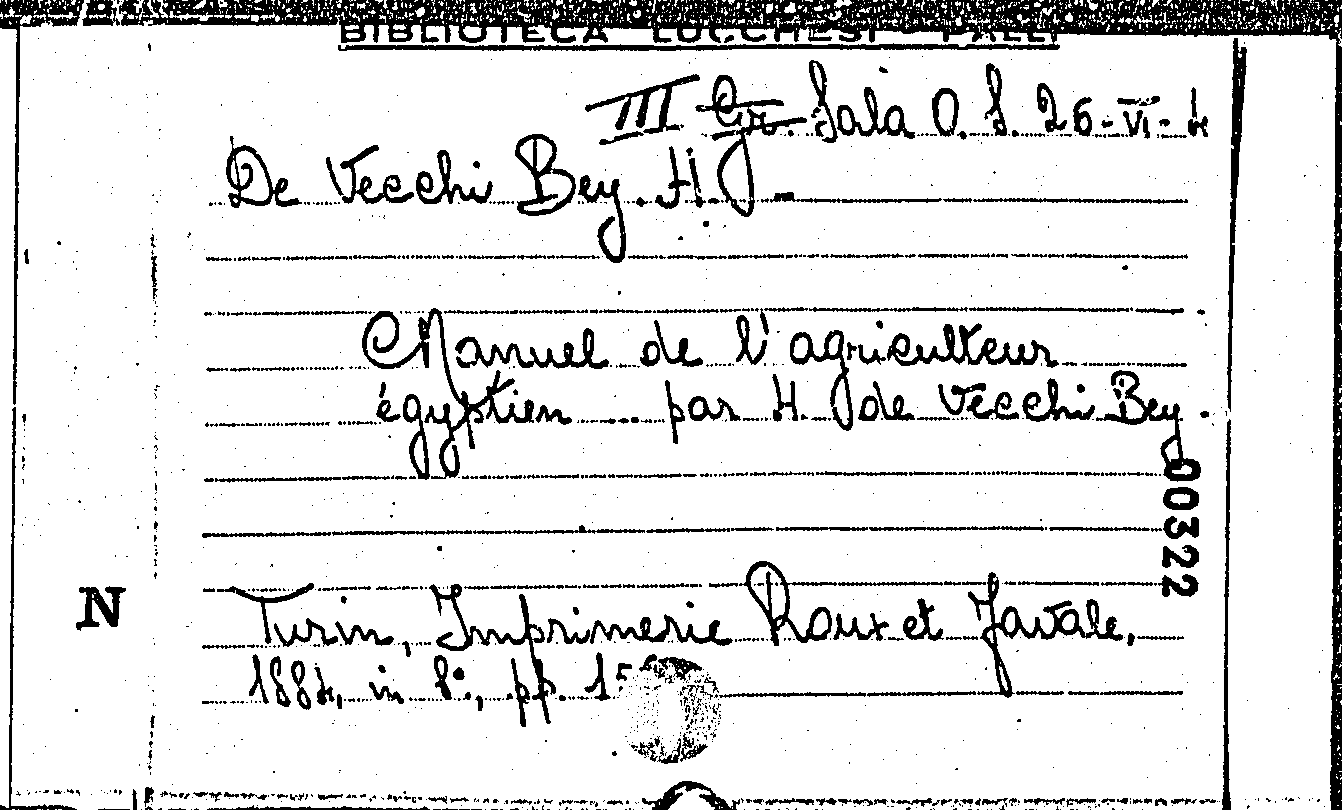 BIBLIOTECA LUCCHESI - PALLI
III Gr. Sala O. S. 26-VI-4
De Vecchi Bey. H. J -
Manuel de l'agriculteur
égyptien ... par H. J de Vecchi Bey.
00322
N
Turin, Imprimerie Roux et Favale,
1884, in 8°, pp.